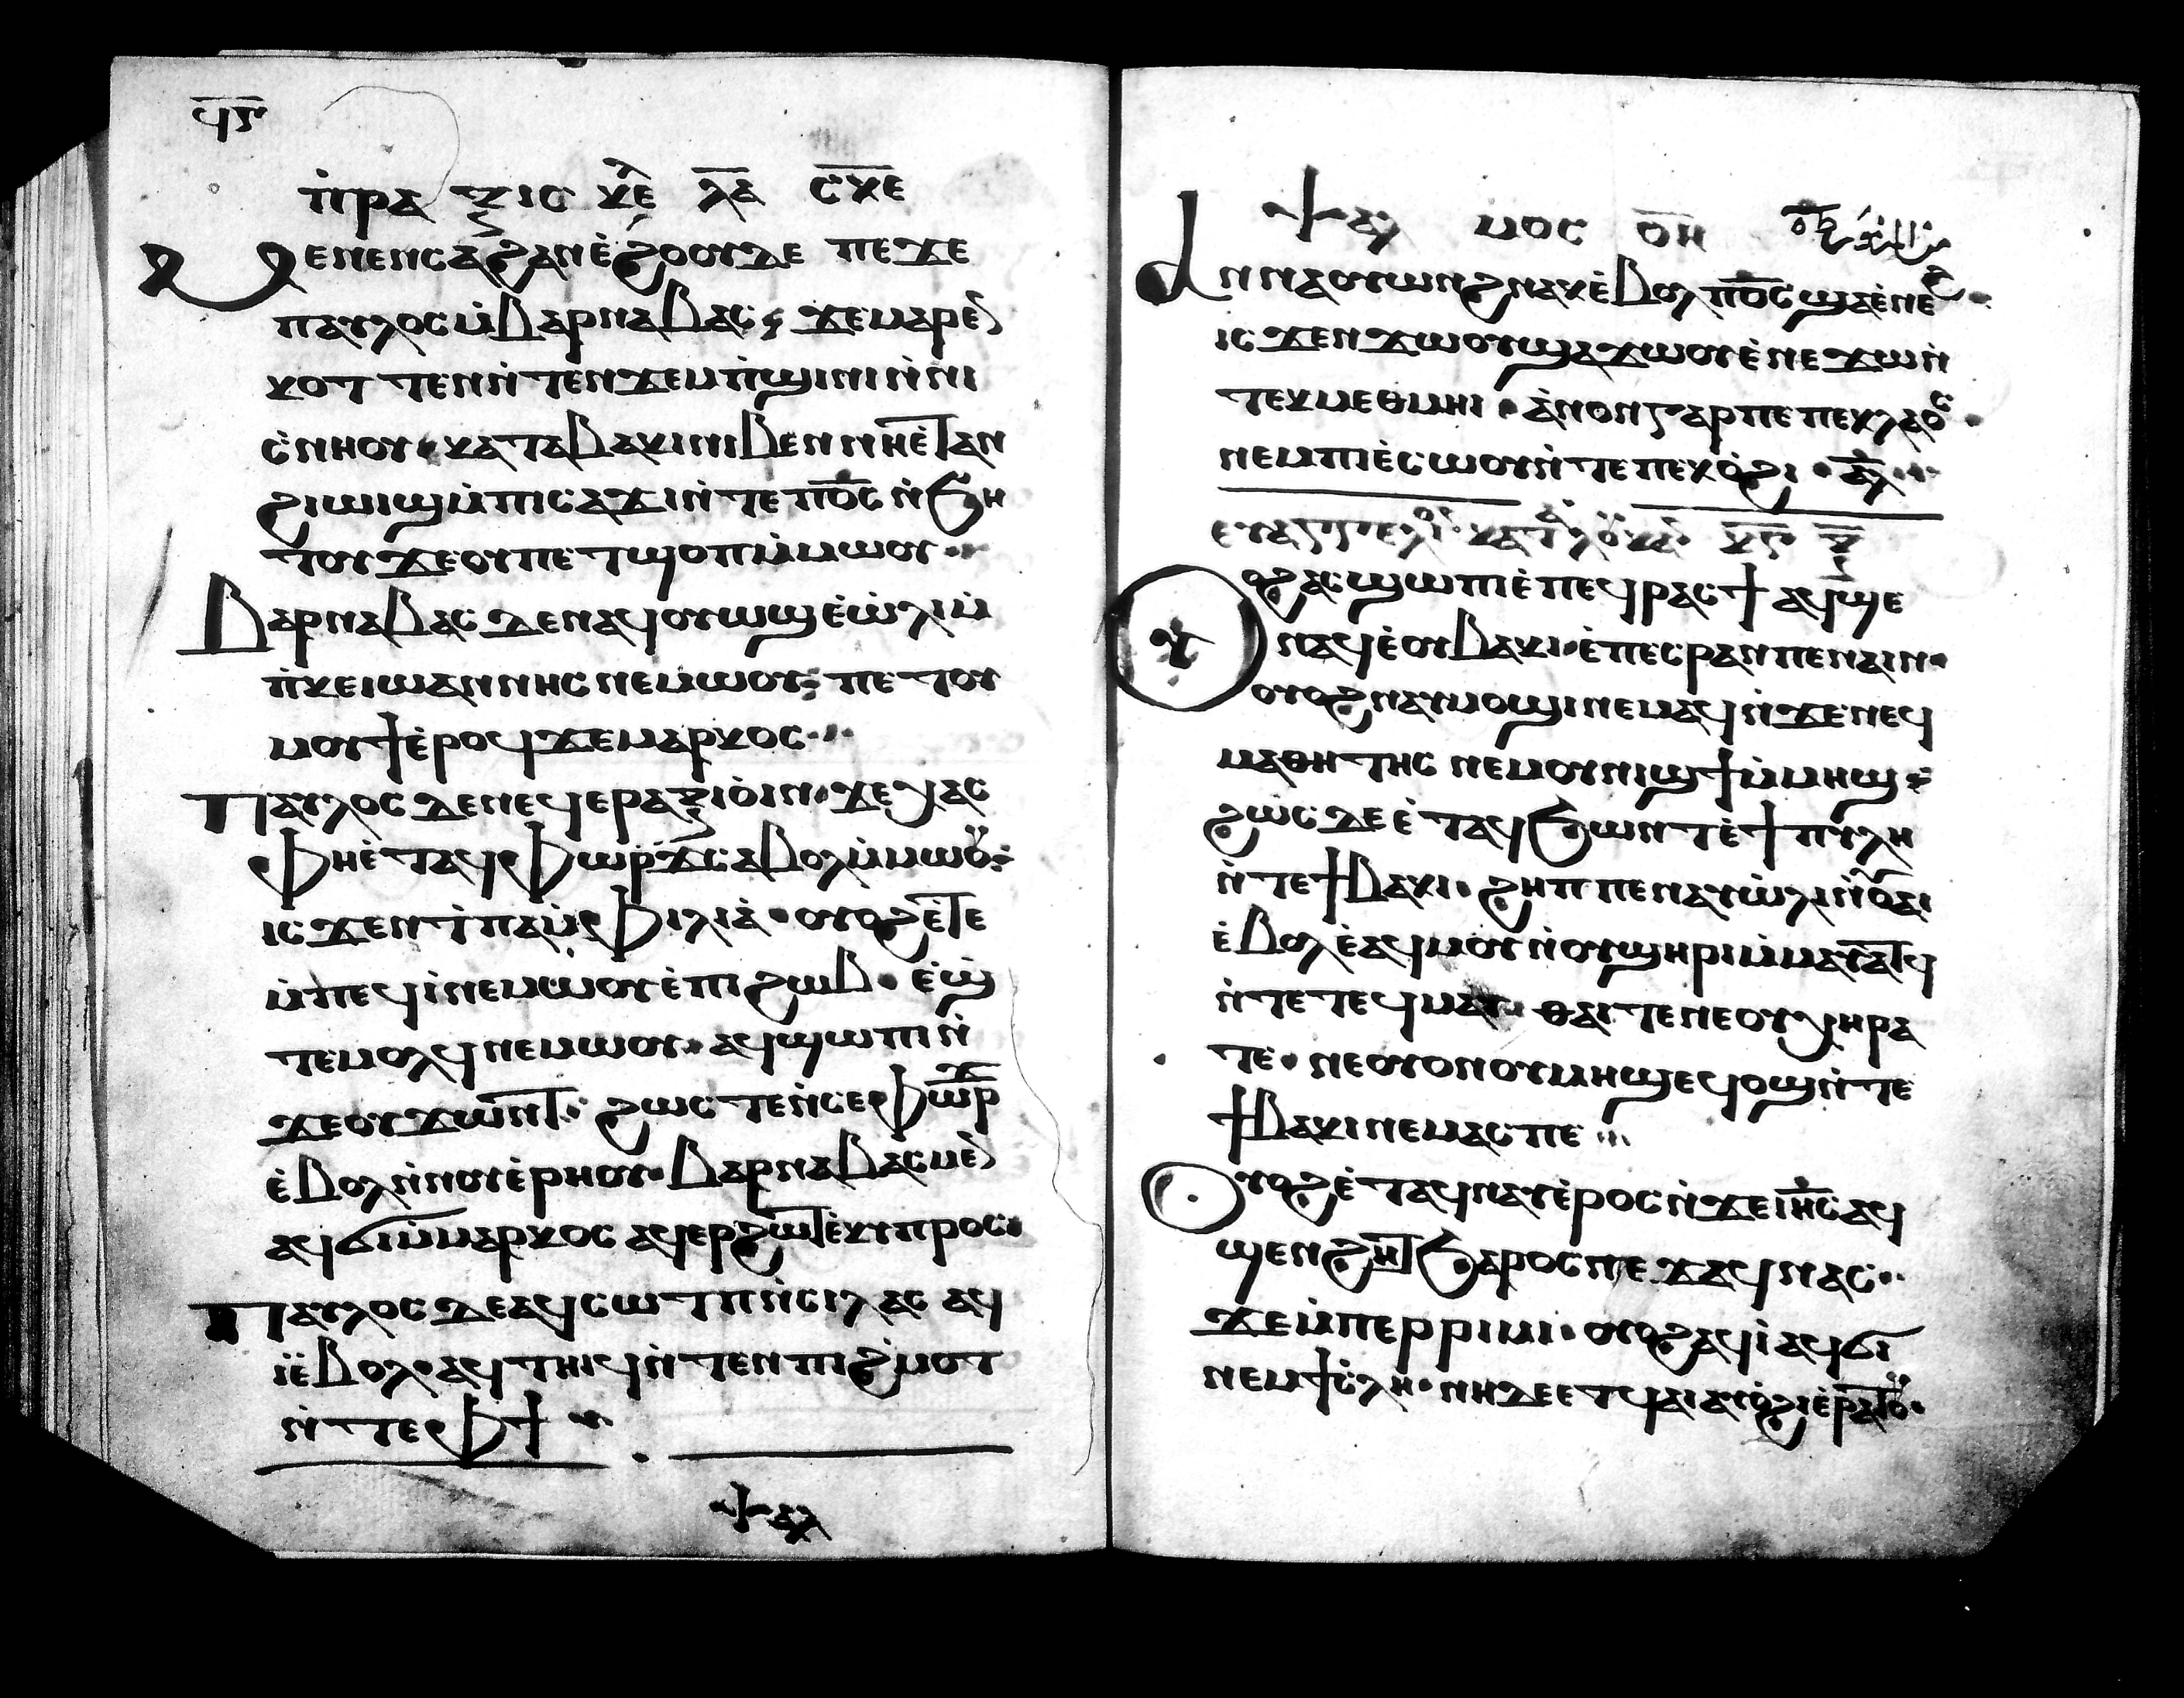 ϥⲋ
ⲡ̀ⲣⲁⲝⲓⲥ ⲕⲉ̅ ⲗ̅ⲁ̅ ⲥ̅ⲕ̅ⲉ̅
Ⲙⲉⲛⲉⲛⲥⲁϩⲁⲛⲉ̀ϩⲟⲟⲩⲇⲉ ⲡⲉϫⲉ
ⲡⲁⲩⲗⲟⲥⲙ̀ⲃⲁⲣⲛⲁⲃⲁⲥ ϫⲉⲙⲁⲣⲉⲛ
ⲕⲟⲧⲧⲉⲛⲛ̀ⲧⲉⲛϫⲉⲙⲡ̀ϣⲓⲛⲓⲛ̀ⲛⲓ
ⲥ̀ⲛⲏⲟⲩ ⲕⲁⲧⲁⲃⲁⲕⲓⲛⲓⲃⲉⲛ ⲛⲏⲉ̀ⲧⲁⲛ
ϩⲓⲱⲓϣⲙ̀ⲡⲓⲥⲁϫⲓⲛ̀ⲧⲉⲡⲟ̅ⲥ̅ ⲛ̀ϧⲏ
ⲧⲟⲩϫⲉⲟⲩⲡⲉⲧϣⲟⲡⲙ̀ⲙⲱⲟⲩ
Ⲃⲁⲣⲛⲁⲃⲁⲥ ⲇⲉⲛⲁϥⲟⲩⲱϣⲉ̀ⲱ̀ⲗⲓⲙ̀
ⲡ̀ⲕⲉⲓⲱⲁⲛⲛⲏⲥⲛⲉⲙⲱⲟⲩ ⲡⲉⲧⲟⲩ
ⲙⲟⲩϯⲉ̀ⲣⲟϥϫⲉⲙⲁⲣⲕⲟⲥ
Ⲡⲁⲩⲗⲟⲥ ⲇⲉⲛⲉϥⲉⲣⲁⲝⲓⲟⲓⲛ ϫⲉϩⲁⲥ
ⲫⲏⲉ̀ⲧⲁϥⲫⲱⲣϫⲥⲁⲃⲟⲗⲙ̀ⲙⲱⲟⲩ
ⲓⲥϫⲉⲛϯⲡⲁⲙⲫⲓⲗⲓⲁ̀ ⲟⲩⲟϩⲉ̀ⲧⲉ
ⲙ̀ⲡⲉϥⲓ̀ⲛⲉⲙⲱⲟⲩⲉ̀ⲡⲓϩⲱⲃ ⲉ̀ϣ
ⲧⲉⲙⲟⲗϥⲛⲉⲙⲱⲟⲩ ⲁϥϣⲱⲡⲓⲛ̀
ϫⲉⲟⲩϫⲱⲛⲧ ϩⲱⲥⲧⲉⲛ̀ⲥⲉⲫⲱⲣϫ
ⲉ̀ⲃⲟⲗⲛ̀ⲛⲟⲩⲉ̀ⲣⲏⲟⲩ ⲃⲁⲣⲛⲁⲃⲁⲥⲙⲉⲛ
ⲁϥϭⲓⲙ̀ⲙⲁⲣⲕⲟⲥ ⲁϥⲉⲣϩⲱⲧⲉ̀ⲕⲩⲡⲣⲟⲥ
Ⲡⲁⲩⲗⲟⲥ ⲇⲉⲁϥⲥⲱⲧⲡⲛ̀ⲥⲓⲗⲁⲥ ⲁϥ
ⲓ̀ⲉ̀ⲃⲟⲗ ⲁϥⲧⲏⲓϥⲛ̀ⲧⲉⲛⲡⲓϩ̀ⲙⲟⲧ
ⲛ̀ⲧⲉⲫϯ
ⲯⲁⲗ
ⲯⲁⲗⲙⲟⲥ ⲟ̅ⲏ̅
Ⲁⲛⲛⲁⲟⲩⲱⲛϩⲛⲁⲕⲉ̀ⲃⲟⲗ ⲡⲟ̅ⲥ̅ ϣⲁⲉ̀ⲛⲉϩ
ⲓⲥϫⲉⲛϫⲱⲟⲩϣⲁϫⲱⲟⲩⲉ̀ⲛⲉϫⲱⲛ̀
ⲧⲉⲕⲙⲉⲑⲙⲏⲓ ⲁ̀ⲛⲟⲛⲅⲁⲣⲡⲉ ⲡⲉⲕⲗⲁⲟⲥ
ⲛⲉⲙⲡⲓⲉ̀ⲥⲱⲟⲩⲛ̀ⲧⲉⲡⲉⲕⲟ̀ϩⲓ ⲁⲗ
ⲉⲩⲁⲅⲅⲉⲗⲓⲟⲛ ⲕⲁⲧⲁ ⲗⲟⲩⲕⲁⲛ ⲕ̅ⲋ̅ ⲍ̅
Ⲟⲩⲟϩⲁⲥϣⲱⲡⲓⲉ̀ⲡⲉϥⲣⲁⲥϯ ⲁϥϣⲉ
ⲛⲁϥⲉ̀ⲟⲩⲃⲁⲕⲓ ⲉ̀ⲡⲉⲥⲣⲁⲛⲡⲉⲛⲁⲓⲛ
ⲟⲩⲟϩⲛⲁⲩⲙⲟϣⲓⲛⲉⲙⲁϥⲛ̀ϫⲉⲛⲉϥ
ⲙⲁⲑⲏⲧⲏⲥ ⲛⲉⲙⲟⲩⲛⲓϣϯⲙ̀ⲙⲏϣ
ϩⲱⲥⲇⲉⲉ̀ⲧⲁϥϧⲱⲛⲧⲉ̀ϯⲡⲩⲗⲏ
ⲛ̀ⲧⲉϯⲃⲁⲕⲓ ϩⲏⲡⲡⲉⲛⲁⲩⲱ̀ⲗⲓⲛ̀ⲟⲩⲁⲓ
ⲉ̀ⲃⲟⲗ ⲉ̀ⲁϥⲙⲟⲩⲛ̀ⲟⲩϣⲏⲣⲓⲙ̀ⲙⲁⲩⲁⲧϥ
ⲛ̀ⲧⲉⲧⲉϥⲙⲁⲩ ⲑⲁⲓⲧⲉⲛⲉⲟⲩⲭⲏⲣⲁ
ⲧⲉ ⲛⲉⲟⲩⲟⲛⲟⲩⲙⲏϣⲉϥⲟϣⲛ̀ⲧⲉ
ϯⲃⲁⲕⲓⲛⲉⲙⲁⲥⲡⲉ
Ⲟⲩⲟϩⲉ̀ⲧⲁϥⲛⲁⲩⲉ̀ⲣⲟⲥⲛ̀ϫⲉⲓⲏ̅ⲥ̅ ⲁϥ
ϣⲉⲛϩⲏⲧϧⲁⲣⲟⲥⲡⲉϫⲁϥⲛⲁⲥ
ϫⲉⲙ̀ⲡⲉⲣⲣⲓⲙⲓ ⲟⲩⲟϩⲁϥⲓ̀ⲁϥϭⲓ
ⲛⲉⲙϯⲥ̀ⲗⲏ ⲛⲏⲇⲉⲉⲧϥⲁⲓⲁⲩⲟ̀ϩⲓⲉ̀ⲣⲁⲧⲟⲩ